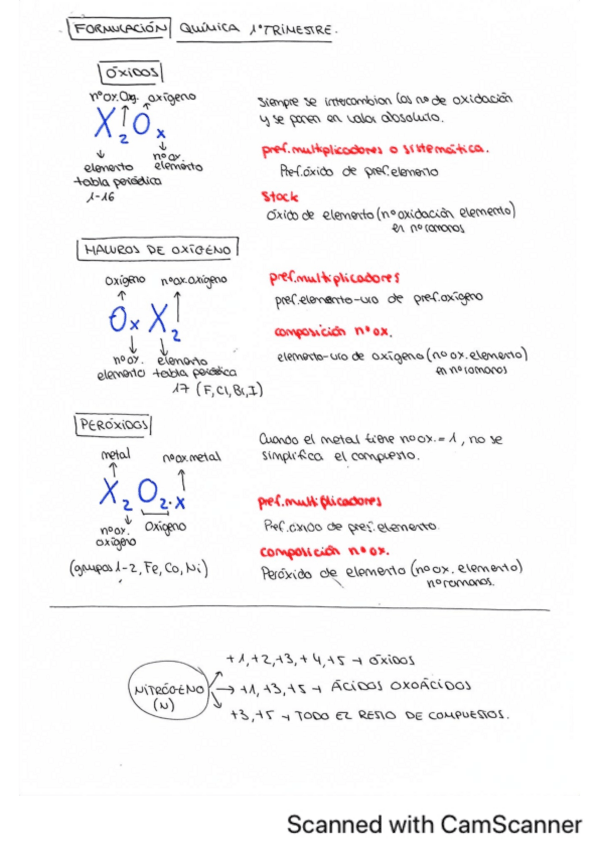 FORMULACIÓN QUÍMICA 1ºTRIMESTRE.
ÓXIDOS
nºox.Oxg. oxígeno
X₂Oₓ
elemento tabla periódica 1-16
nºox. elemento
Siempre se intercambian los nº de oxidación
y se ponen en valor absoluto.
pref.multiplicadores o sistemática.
Pref.óxido de pref.elemento
Stock
Óxido de elemento (nºoxidación elemento)
en nºromanos
HALUROS DE OXÍGENO
oxígeno nºox.oxígeno
OₓX₂
nºox. elemento
elemento tabla periódica
17 (F,Cl,Br,I)
pref.multiplicadores
pref.elemento-uro de pref.oxígeno
composición nºox.
elemento-uro de oxígeno (nºox.elemento)
en nºromanos
PERÓXIDOS
metal nºox.metal
X₂O₂·ₓ
nºox. oxígeno
Oxígeno
(grupos 1-2, Fe, Co, Ni)
Cuando el metal tiene nºox.=1, no se
simplifica el compuesto.
pref.multiplicadores
Pref.óxido de pref.elemento
composición nºox.
Peróxido de elemento (nºox.elemento)
nºromanos.
NITRÓGENO
(N)
+1,+2,+3,+4,+5 → óxidos
→ +1,+3,+5 → ÁCIDOS OXOÁCIDOS
+3,+5 → TODO EL RESTO DE COMPUESTOS.
Scanned with CamScanner